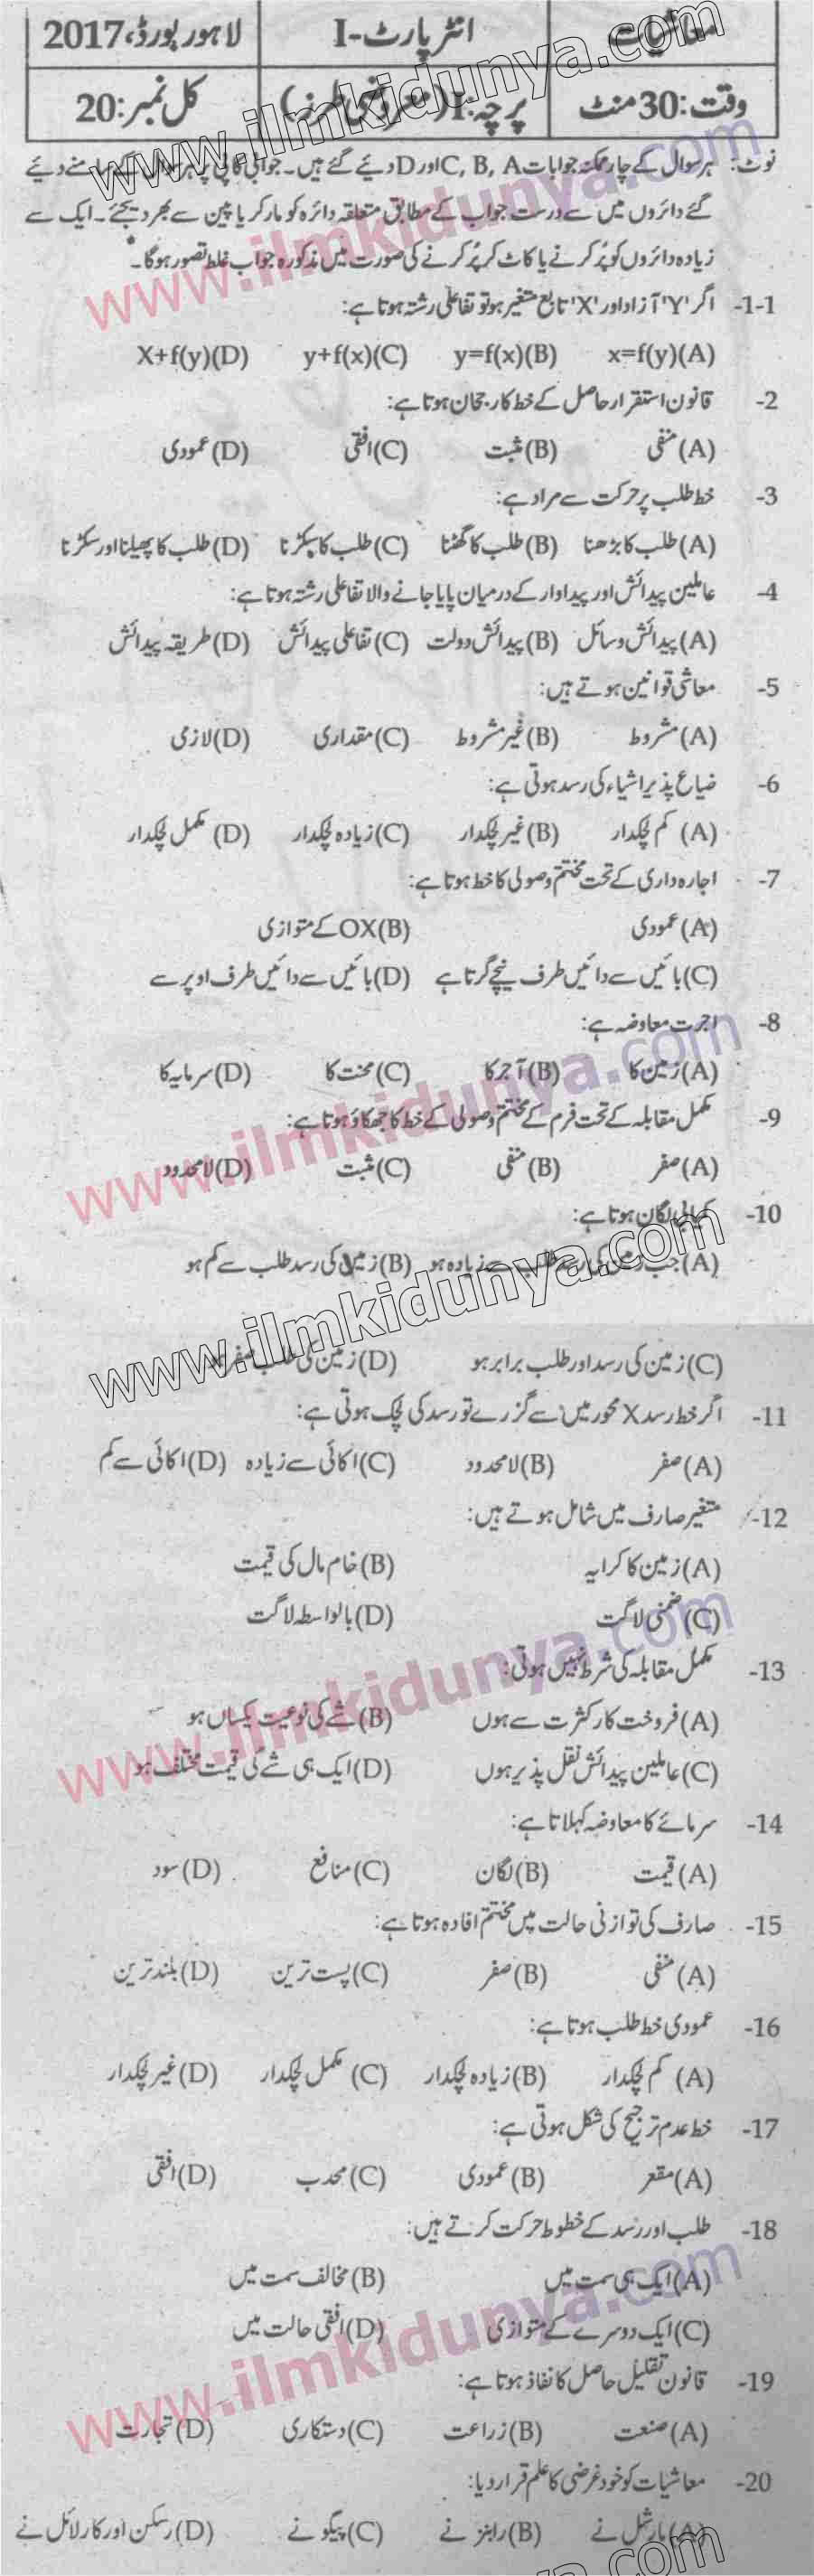 معاشیات انٹر پارٹ-I لاہور بورڈ، 2017
وقت: 30 منٹ پرچہ: I (معروضی طرز) کل نمبر: 20
نوٹ: ہر سوال کے چار ممکنہ جوابات A، B، C اور D دیئے گئے ہیں۔ جوابی کاپی پر ہر سوال کے سامنے دیئے
گئے دائروں میں سے درست جواب کے مطابق متعلقہ دائرہ کو مارکر یا پین سے بھر دیجئے۔ ایک سے
زیادہ دائروں کو پُر کرنے یا کاٹ کر پُر کرنے کی صورت میں مذکورہ جواب غلط تصور ہوگا۔
1-1- اگر 'Y' آزاد اور 'X' تابع متغیر ہو تو تفاعلی رشتہ ہوتا ہے:
(A) x=f(y) (B) y=f(x) (C) y+f(x) (D) X+f(y)
2- قانون استقرار حاصل کے خط کا رجحان ہوتا ہے:
(A) منفی (B) مثبت (C) افقی (D) عمودی
3- خط طلب پر حرکت سے مراد ہے:
(A) طلب کا بڑھنا (B) طلب کا گھٹنا (C) طلب کا سکڑنا (D) طلب کا پھیلنا اور سکڑنا
4- عاملین پیدائش اور پیداوار کے درمیان پایا جانے والا تفاعلی رشتہ ہوتا ہے:
(A) پیدائش وسائل (B) پیدائش دولت (C) تفاعلی پیدائش (D) طریقہ پیدائش
5- معاشی قوانین ہوتے ہیں:
(A) مشروط (B) غیر مشروط (C) مقداری (D) لازمی
6- ضیاع پذیر اشیاء کی رسد ہوتی ہے:
(A) کم لچکدار (B) غیر لچکدار (C) زیادہ لچکدار (D) مکمل لچکدار
7- اجارہ داری کے تحت مختتم وصولی کا خط ہوتا ہے:
(A) عمودی (B) OX کے متوازی
(C) بائیں سے دائیں طرف نیچے گرتا ہے (D) بائیں سے دائیں طرف اوپر سے
8- اجرت معاوضہ ہے:
(A) زمین کا (B) آجر کا (C) محنت کا (D) سرمایہ کا
9- مکمل مقابلہ کے تحت فرم کے مختتم وصولی کے خط کا جھکاؤ ہوتا ہے:
(A) صفر (B) منفی (C) مثبت (D) لامحدود
10- کمیابی لگان ہوتا ہے:
(A) جب زمین کی رسد طلب سے زیادہ ہو (B) زمین کی رسد طلب سے کم ہو
(C) زمین کی رسد اور طلب برابر ہو (D) زمین کی طلب صفر ہو
11- اگر خط رسد X محور میں سے گزرے تو رسد کی لچک ہوتی ہے:
(A) صفر (B) لامحدود (C) اکائی سے زیادہ (D) اکائی سے کم
12- متغیر مصارف میں شامل ہوتے ہیں:
(A) زمین کا کرایہ (B) خام مال کی قیمت
(C) ضمنی لاگت (D) بالواسطہ لاگت
13- مکمل مقابلہ کی شرط نہیں ہوتی:
(A) فروخت کار کثرت سے ہوں (B) شے کی نوعیت یکساں ہو
(C) عاملین پیدائش نقل پذیر ہوں (D) ایک ہی شے کی قیمت مختلف ہو
14- سرمائے کا معاوضہ کہلاتا ہے:
(A) قیمت (B) لگان (C) منافع (D) سود
15- صارف کی توازنی حالت میں مختتم افادہ ہوتا ہے:
(A) منفی (B) صفر (C) پست ترین (D) بلند ترین
16- عمودی خط طلب ہوتا ہے:
(A) کم لچکدار (B) زیادہ لچکدار (C) مکمل لچکدار (D) غیر لچکدار
17- خط عدم ترجیح کی شکل ہوتی ہے:
(A) مقعر (B) عمودی (C) محدب (D) افقی
18- طلب اور رسد کے خطوط حرکت کرتے ہیں:
(A) ایک ہی سمت میں (B) مخالف سمت میں
(C) ایک دوسرے کے متوازی (D) افقی حالت میں
19- قانون تقلیل حاصل کا نفاذ ہوتا ہے:
(A) صنعت (B) زراعت (C) دستکاری (D) تجارت
20- معاشیات کو خود غرضی کا علم قرار دیا:
(A) مارشل نے (B) رابنز نے (C) پیگو نے (D) رسکن اور کارلائل نے
www.ilmkidunya.com